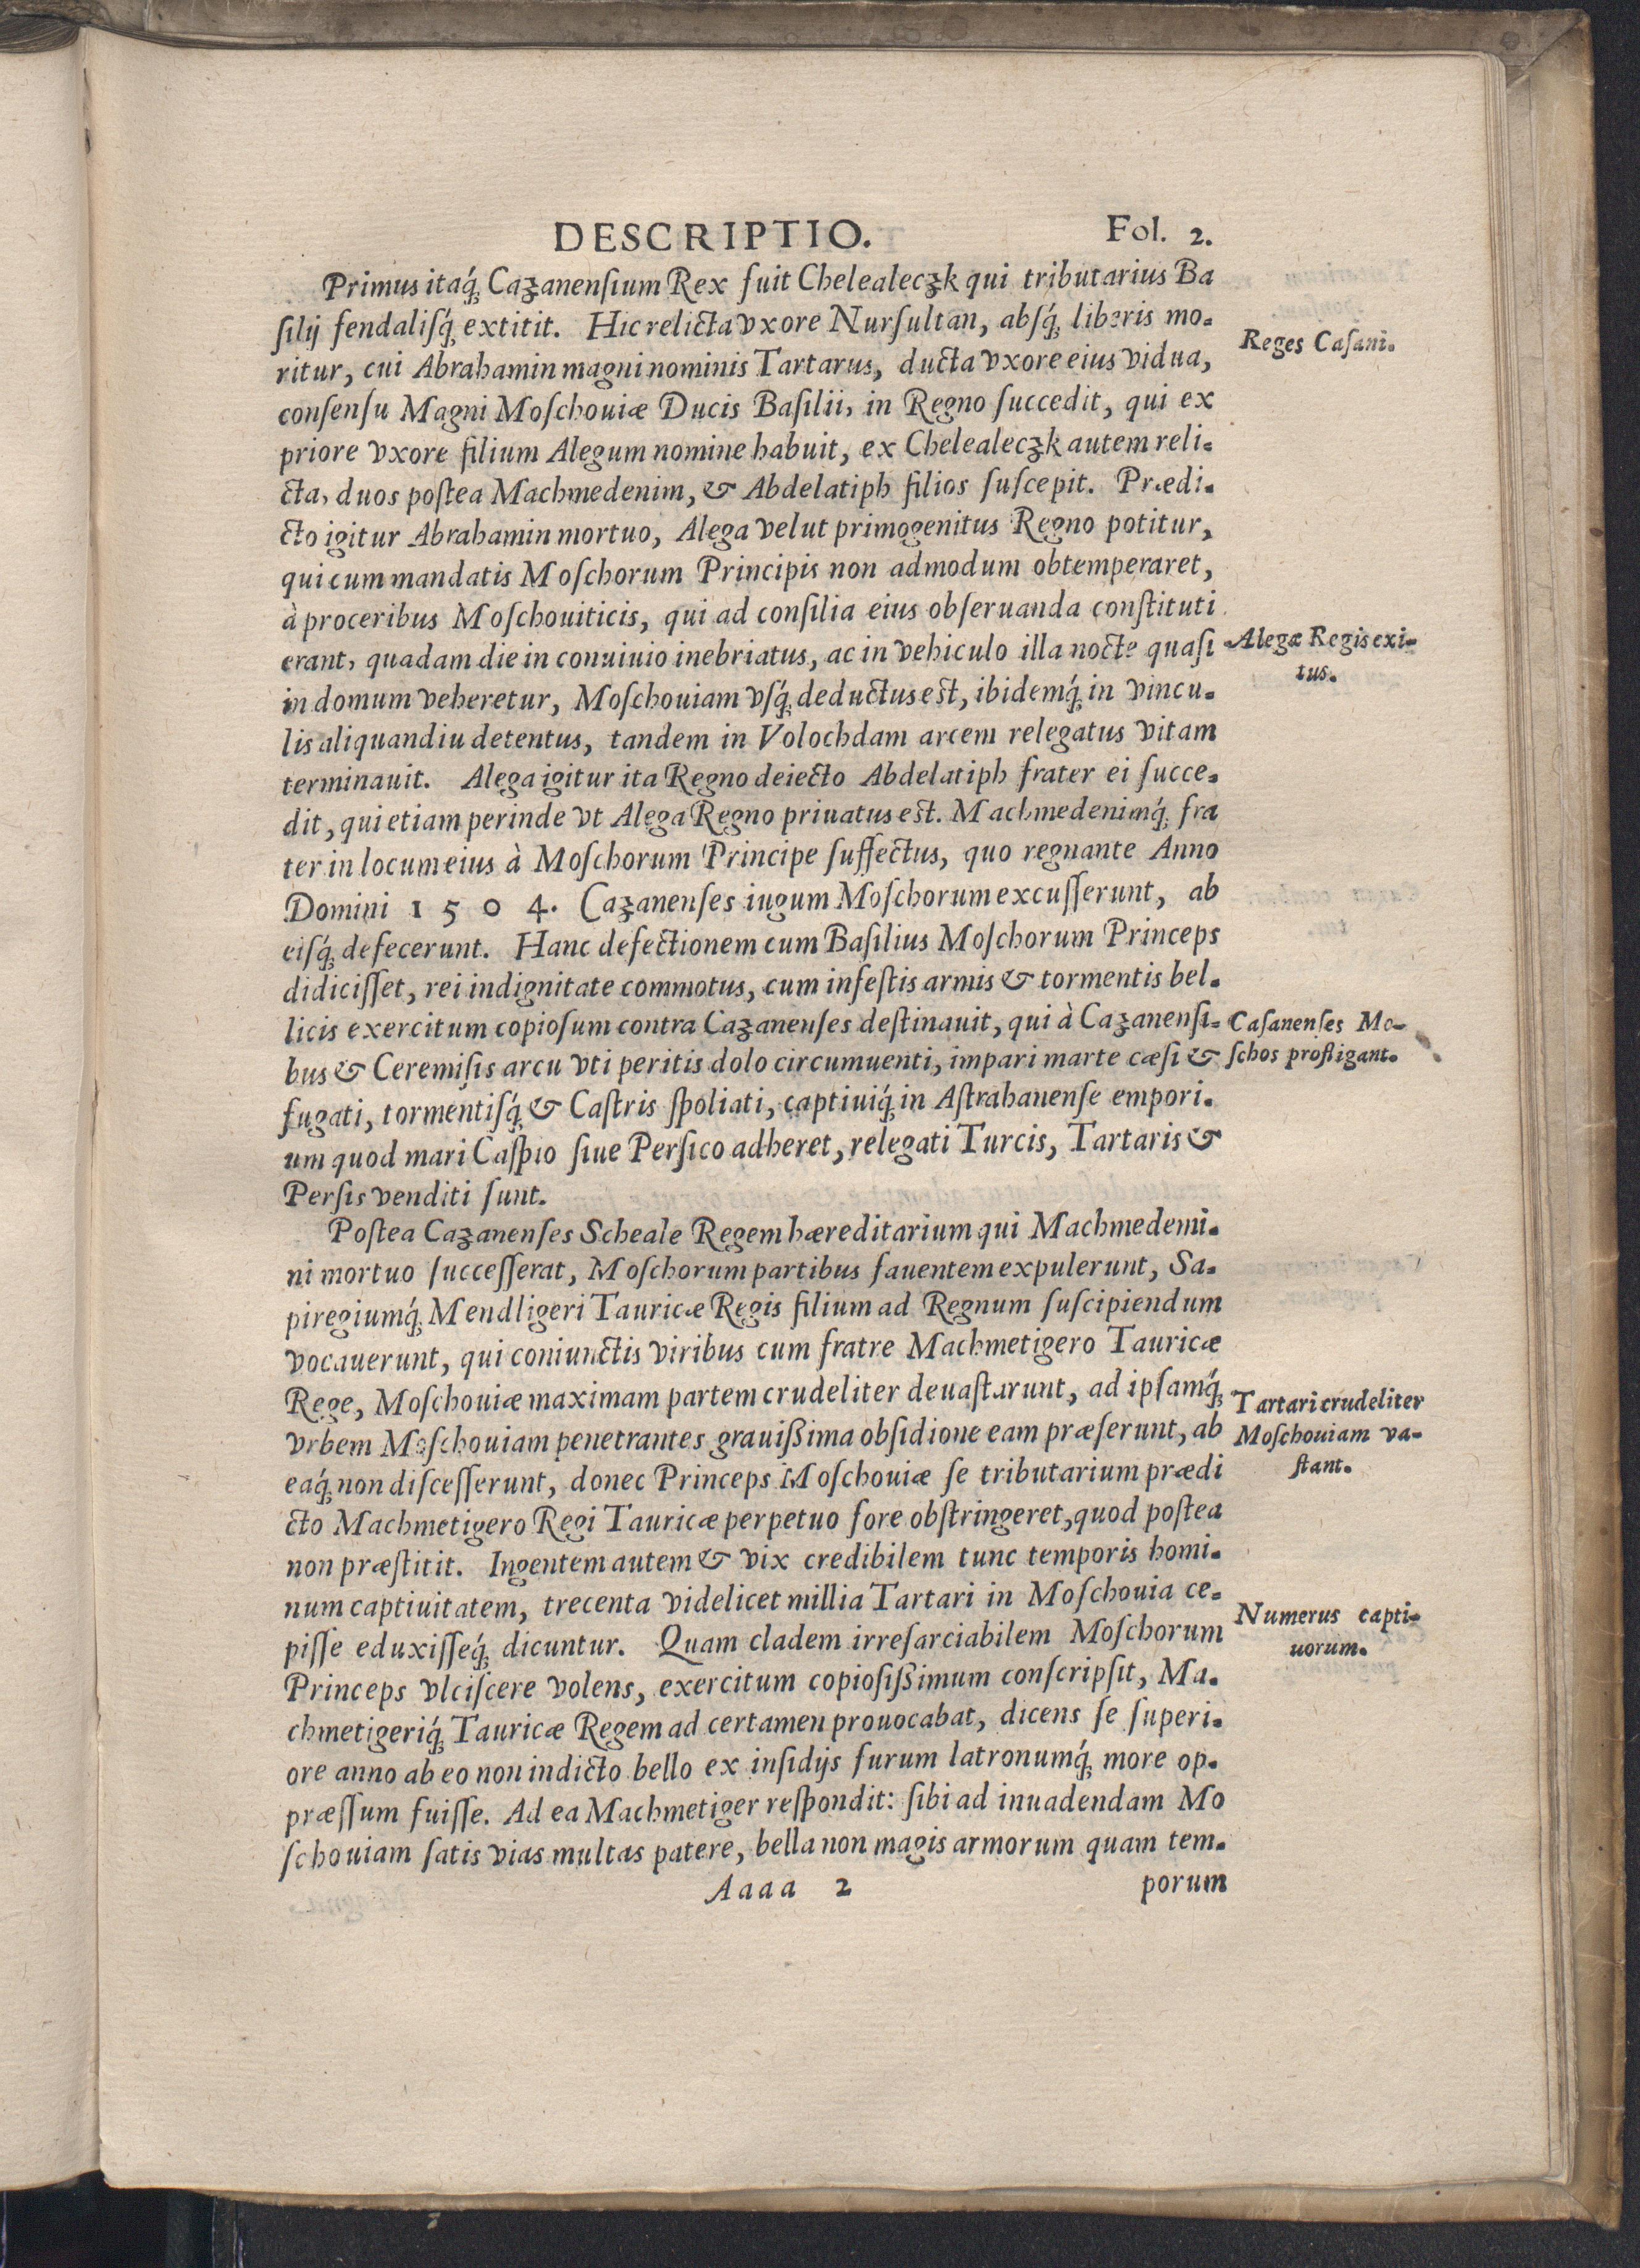 DESCRIPTIO. Fol. 2.
Primus itaq́; Cazanenſium Rex fuit Chelealeczk qui tributarius Ba
ſilij fendaliſq́; extitit. Hic relicta vxore Nurſultan, abſq́; liberis mo-
ritur, cui Abrahamin magni nominis Tartarus, ducta vxore eius vidua,
Reges Caſani.
conſenſu Magni Moſchouiæ Ducis Baſilii, in Regno ſuccedit, qui ex
priore vxore filium Alegum nomine habuit, ex Chelealeczk autem reli-
cta, duos poſtea Machmedenim, & Abdelatiph filios ſuſcepit. Prædi-
cto igitur Abrahamin mortuo, Alega velut primogenitus Regno potitur,
qui cum mandatis Moſchorum Principis non admodum obtemperaret,
à proceribus Moſchouiticis, qui ad conſilia eius obſeruanda conſtituti
erant, quadam die in conuiuio inebriatus, ac in vehiculo illa nocte quaſi
in domum veheretur, Moſchouiam vſq́; deductus est, ibidemq́; in vincu-
Alegæ Regis exi-
tus.
lis aliquandiu detentus, tandem in Volochdam arcem relegatus vitam
terminauit. Alega igitur ita Regno deiecto Abdelatiph frater ei ſucce-
dit, qui etiam perinde vt Alega Regno priuatus est. Machmedenimq́; fra
ter in locum eius à Moſchorum Principe ſuffectus, quo regnante Anno
Domini 1504. Cazanenſes iugum Moſchorum excuſſerunt, ab
eiſq́; defecerunt. Hanc defectionem cum Baſilius Moſchorum Princeps
didiciſſet, rei indignitate commotus, cum infeſtis armis & tormentis bel-
licis exercitum copioſum contra Cazanenſes deſtinauit, qui à Cazanenſi-
bus & Ceremiſis arcu vti peritis dolo circumuenti, impari marte cæſi &
Caſanenſes Mo-
ſchos profligant.
fugati, tormentiſq́; & Caſtris ſpoliati, captiuiq́; in Aſtrahanenſe empori-
um quod mari Caſpio ſiue Perſico adheret, relegati Turcis, Tartaris &
Perſis venditi ſunt.
Poſtea Cazanenſes Scheale Regem hæreditarium qui Machmedemi-
ni mortuo ſucceſſerat, Moſchorum partibus fauentem expulerunt, Sa-
piregiumq́; Mendligeri Tauricæ Regis filium ad Regnum ſuſcipiendum
vocauerunt, qui coniunctis viribus cum fratre Machmetigero Tauricæ
Rege, Moſchouiæ maximam partem crudeliter deuaſtarunt, ad ipſamq́;
vrbem Moſchouiam penetrantes grauißima obſidione eam præſerunt, ab
eaq́; non diſceſſerunt, donec Princeps Moſchouiæ ſe tributarium prædi
Tartari crudeliter
Moſchouiam va-
ſtant.
cto Machmetigero Regi Tauricæ perpetuo fore obſtringeret, quod poſtea
non præſtitit. Ingentem autem & vix credibilem tunc temporis homi-
num captiuitatem, trecenta videlicet millia Tartari in Moſchouia ce-
piſſe eduxiſſeq́; dicuntur. Quam cladem irreſarciabilem Moſchorum
Numerus capti-
uorum.
Princeps vlciſcere volens, exercitum copioſißimum conſcripſit, Ma-
chmetigeriq́; Tauricæ Regem ad certamen prouocabat, dicens ſe ſuperi-
ore anno ab eo non indicto bello ex inſidijs furum latronumq́; more op-
præſſum fuiſſe. Ad ea Machmetiger reſpondit: ſibi ad inuadendam Mo
ſchouiam ſatis vias multas patere, bella non magis armorum quam tem-
Aaaa 2 porum